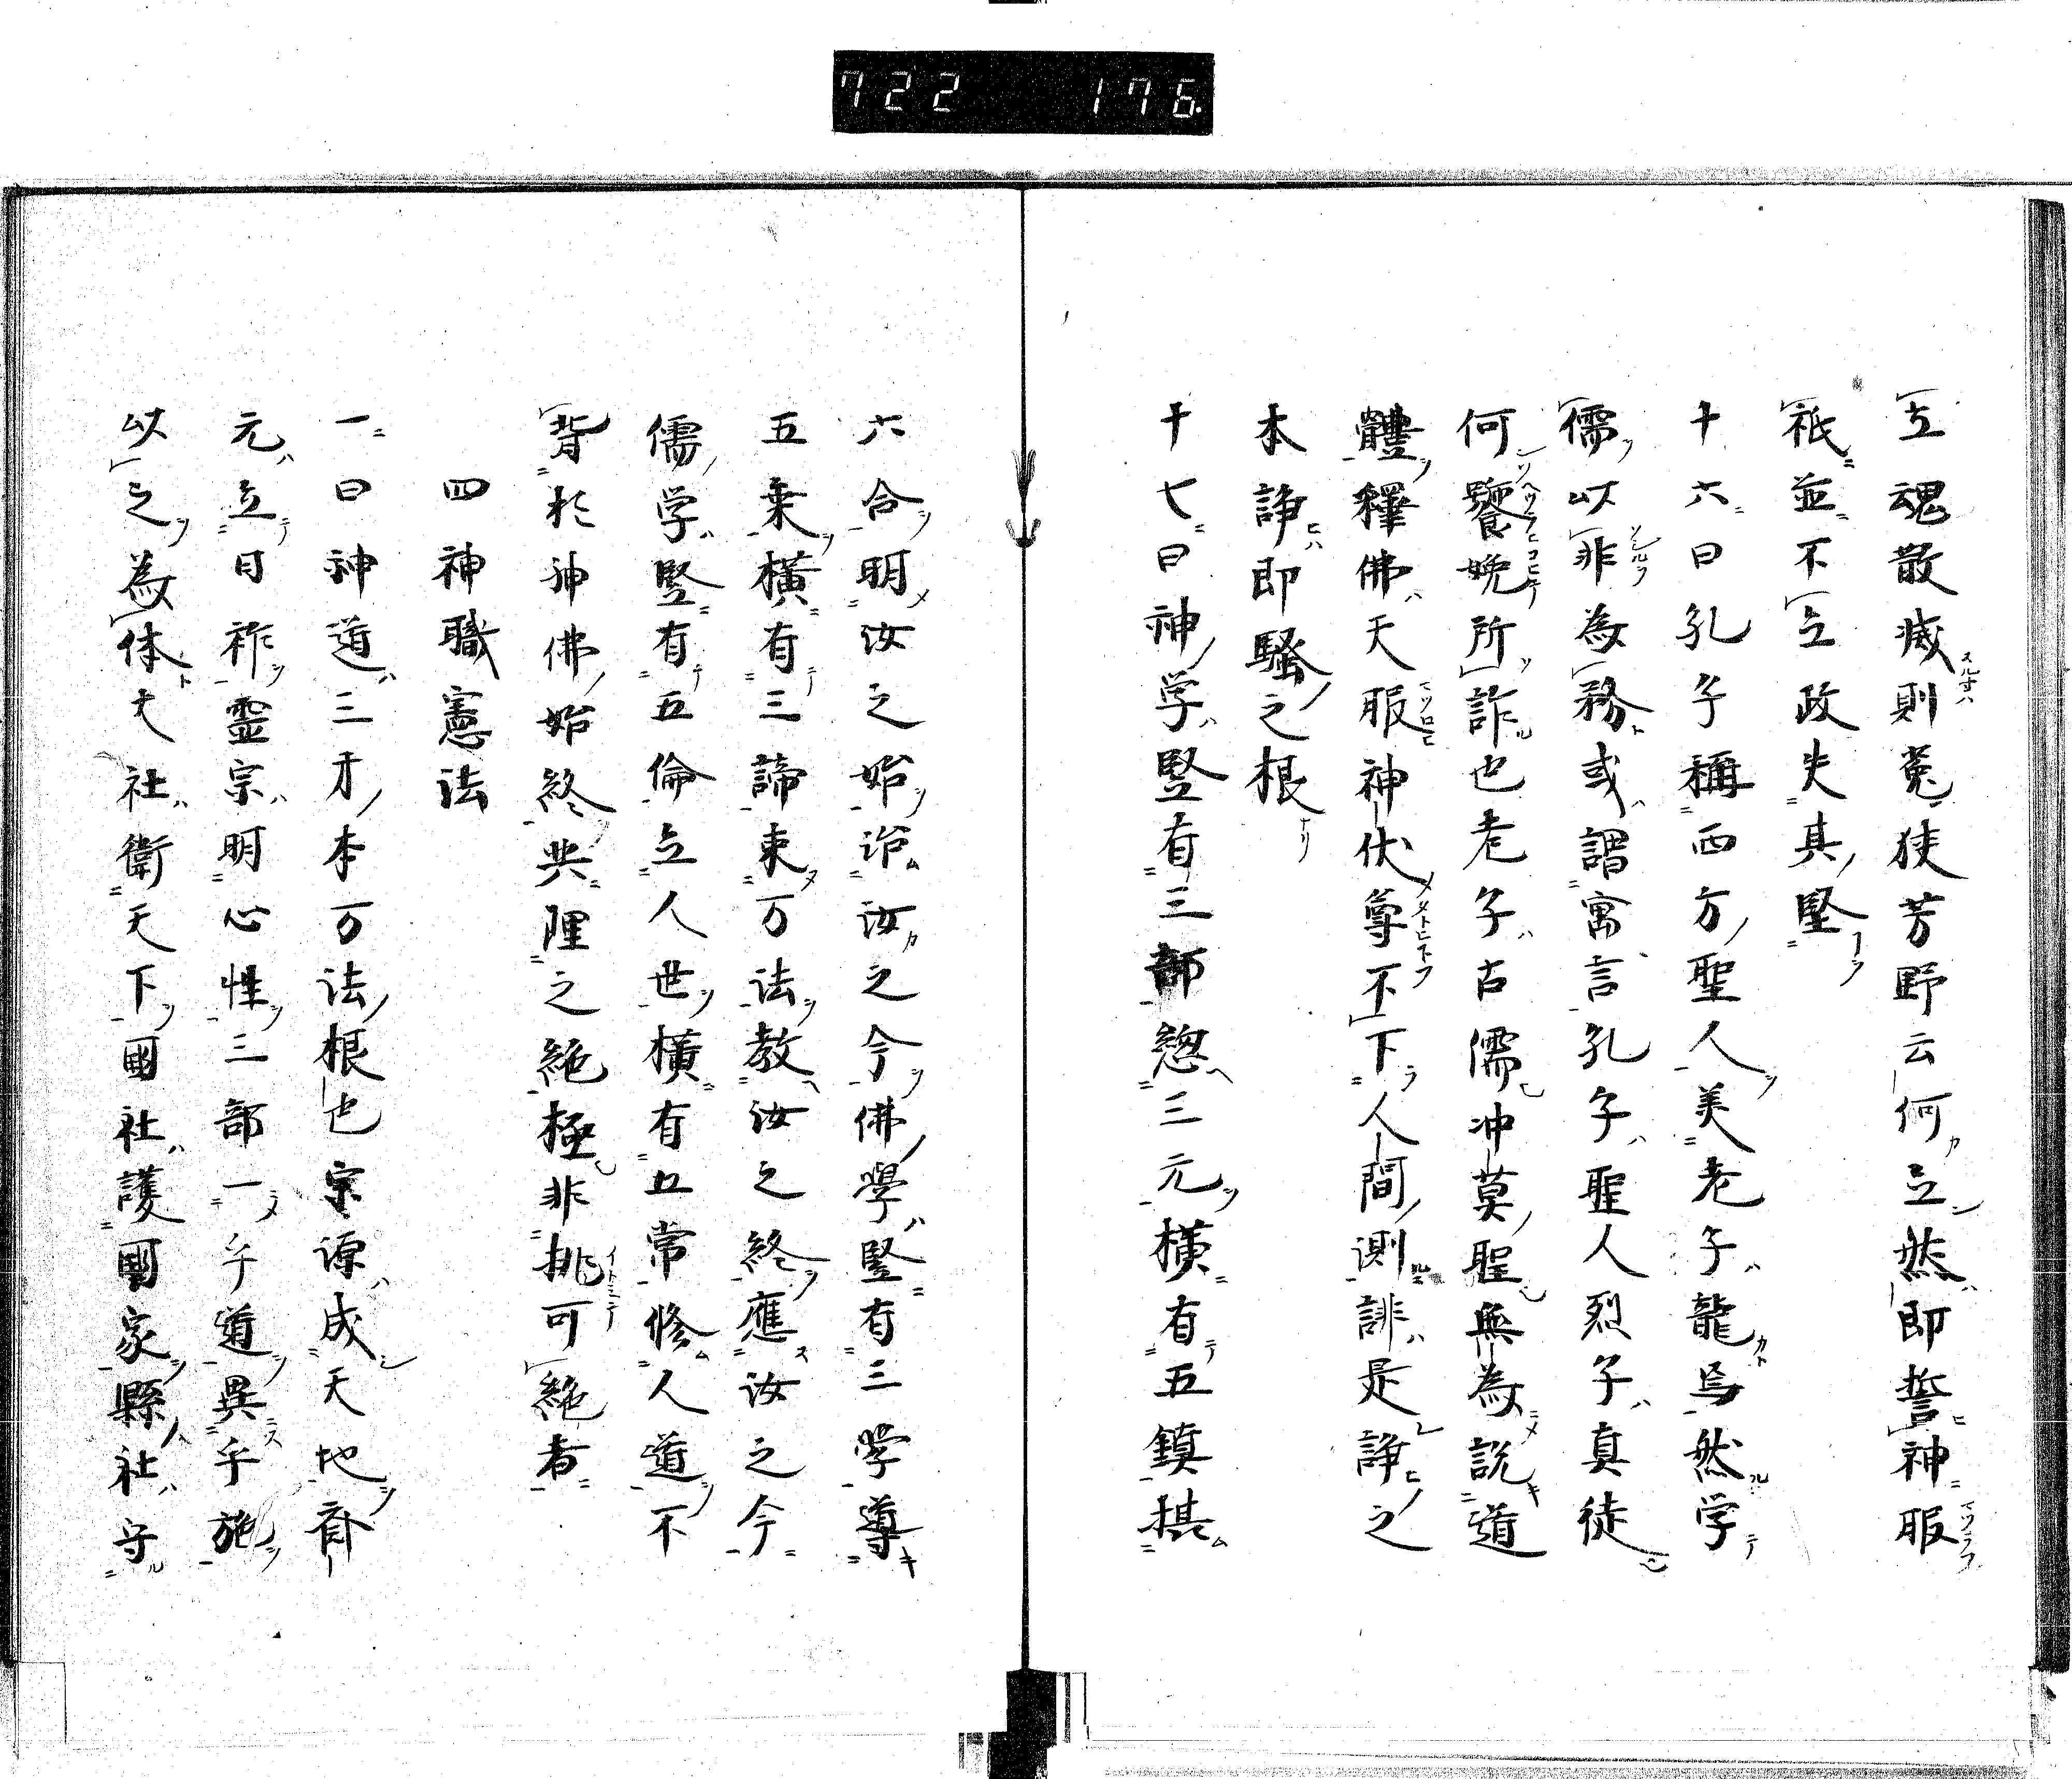 722 176
立魂散滅則菟使芳野云何立然即誓神服
祇並不立政失其堅
十六曰孔子稱西方聖人美老子龍烏然学
儒以非為務或謂寓言孔子聖人烈子真徒
何饕娩所詐也老子古儒冲莫聖無為説道
體釋佛天服神伏尊不下人間測誹是諍之
本諍即騷之根
十七曰神学竪有三部總三元横有五鎮棋
六合明汝之始治汝之今佛學竪有三学導
五乗横有三諦束万法教汝之終應汝之今
儒学竪有五倫立人世横有五常修人道不
背於神佛始終共理之絶極非挑可絶者
四神職憲法
一曰神道三才本万法根也宗源成天地齋
元立日祚霊宗明心性三部一乎道異乎施
以之為体大社衛天下國社護國家縣社守